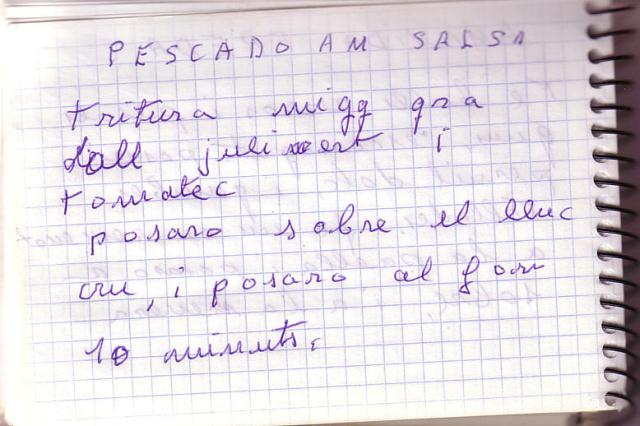 PESCADO AM SALSA
tritura migg gra
dall julivert i
tomatec
posaro sobre el lluc
cru, i posaro al forn
10 minuts.